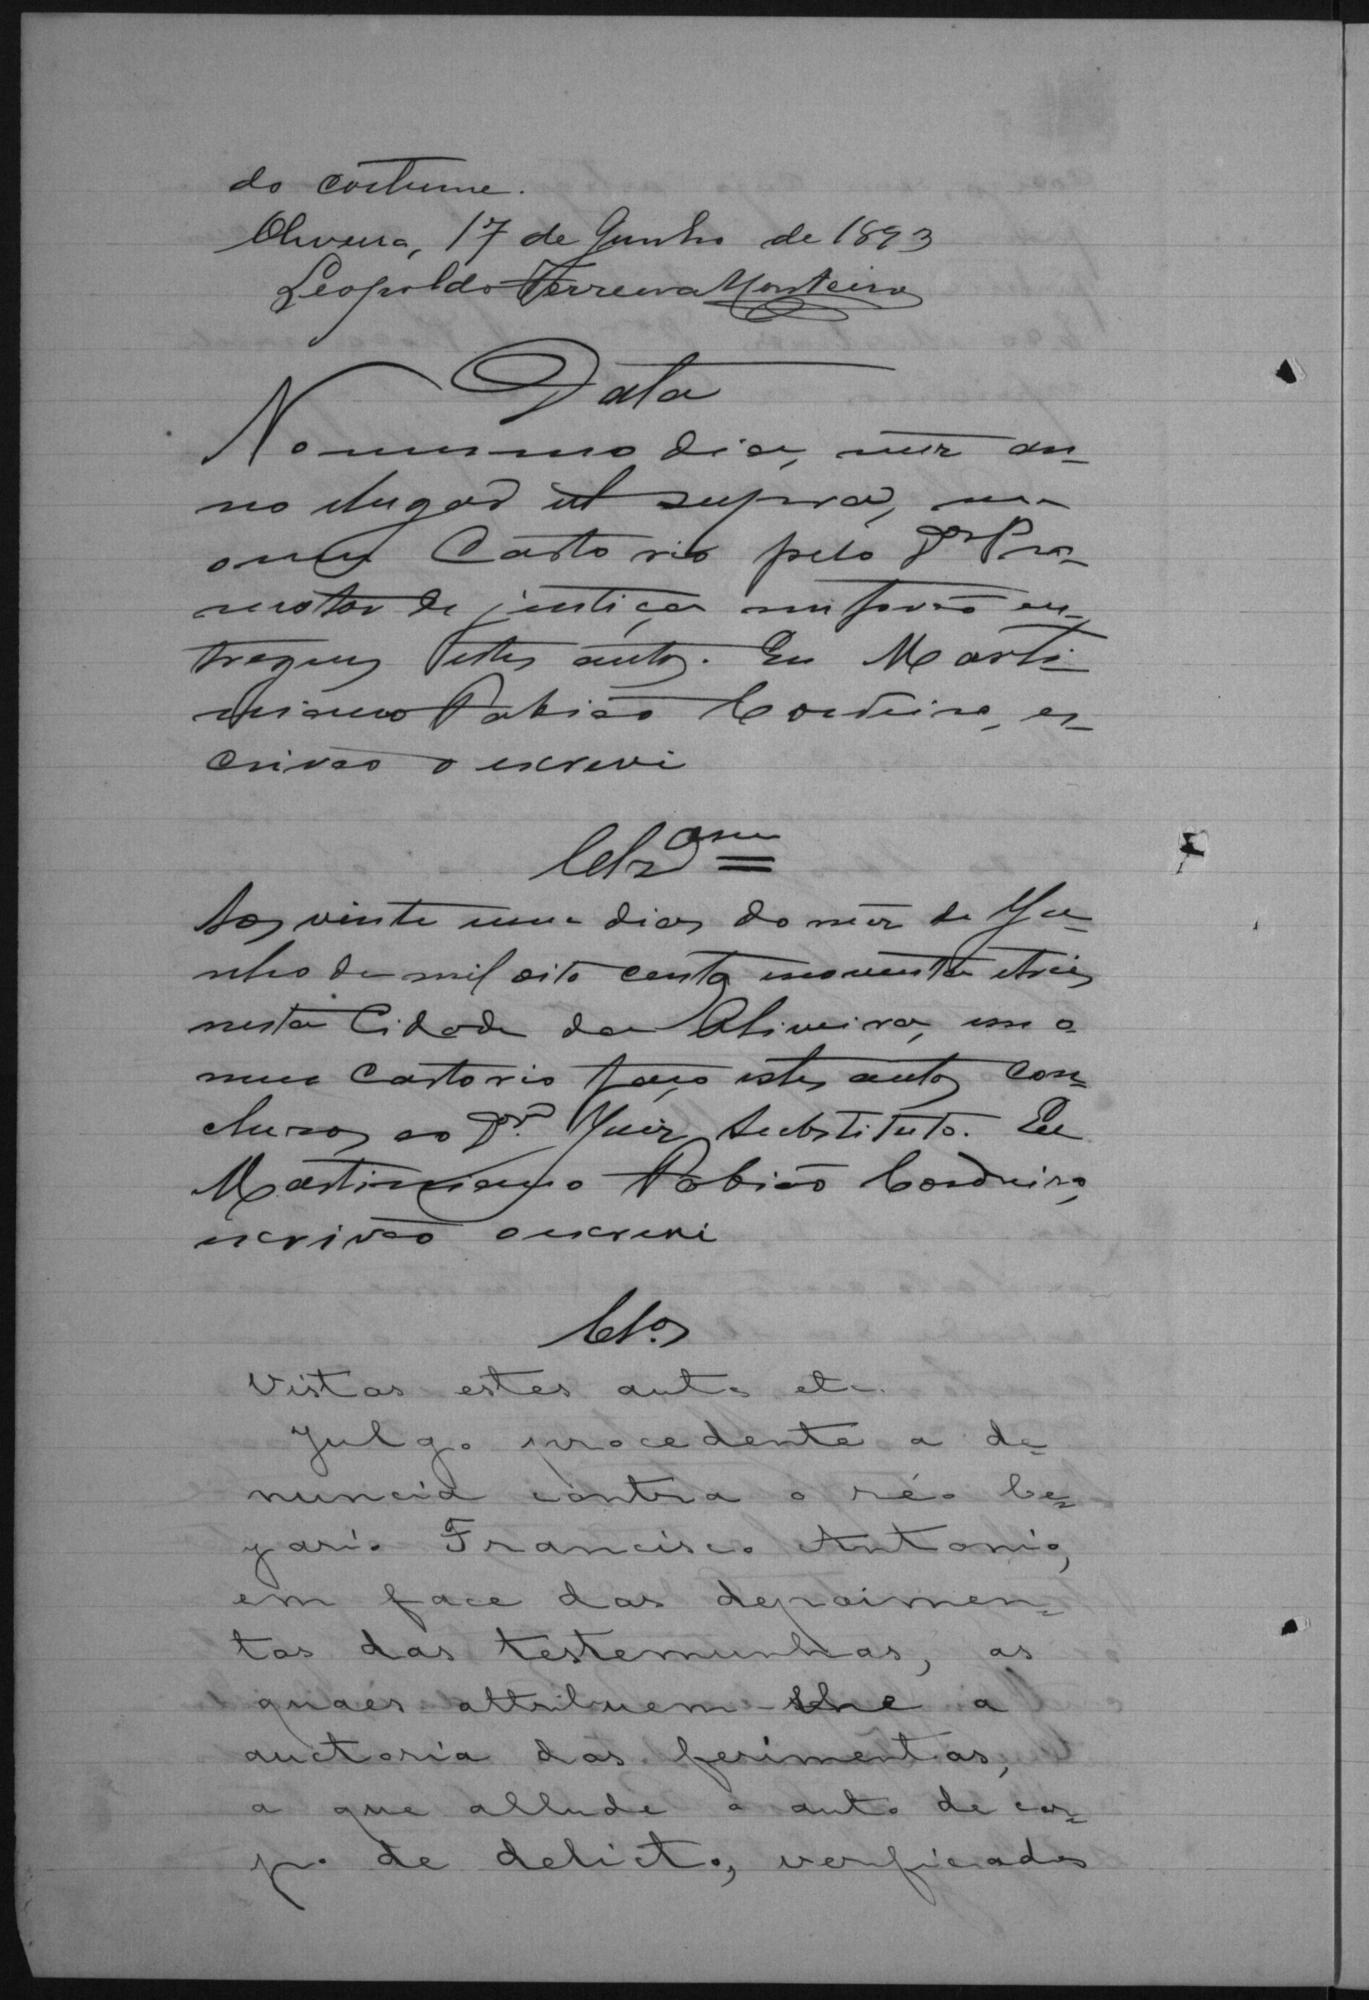 do costume.
Oliveira, 17 de Junho de 1893
Leopoldo Ferreira Monteiro
Data
No mesmo dia, mez an-
no elugar ut supra, em
meu Cartorio pelo Dor Pro-
motor de justiça me forão en-
tregues estes autos. Eu Marti-
niano Fabião Cordeiro, es-
crivão o escrevi
Clzam
Aos vinte um dias do mez de Ju-
nho de mil oito centos enoventa etres
nesta Cidade da Oliveira, em o
meu Cartorio faço estes autos con-
clusos ao Dor. Juiz Substituto. Eu
Martiniano Fabião Cordeiro,
escrivão oescrevi
Clos
Vistos estes autos etc.
Julgo procedente a de-
nuncia contra o réo Ce-
zario Francisco Antonio,
em face dos depoimen-
tos das testemunhas, as
quaes attribuem-lhe a
auctoria dos ferimentos,
a que allude o auto de cor-
po de delicto, verificados